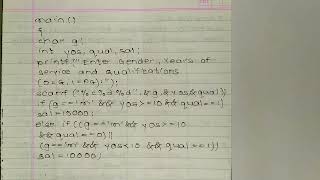 main()
{
char g;
int yos, qual, sal;
printf("Enter Gender, Years of
service and Qualifications
(0=G, 1=PG):");
scanf("%c%d%d", &g, &yos, &qual);
if (g=='m' && yos>=10 && qual==1)
sal=15000;
else if ((g=='m' && yos>=10
&& qual==0)||
(g=='m' && yos<10 && qual==1))
sal=10000;